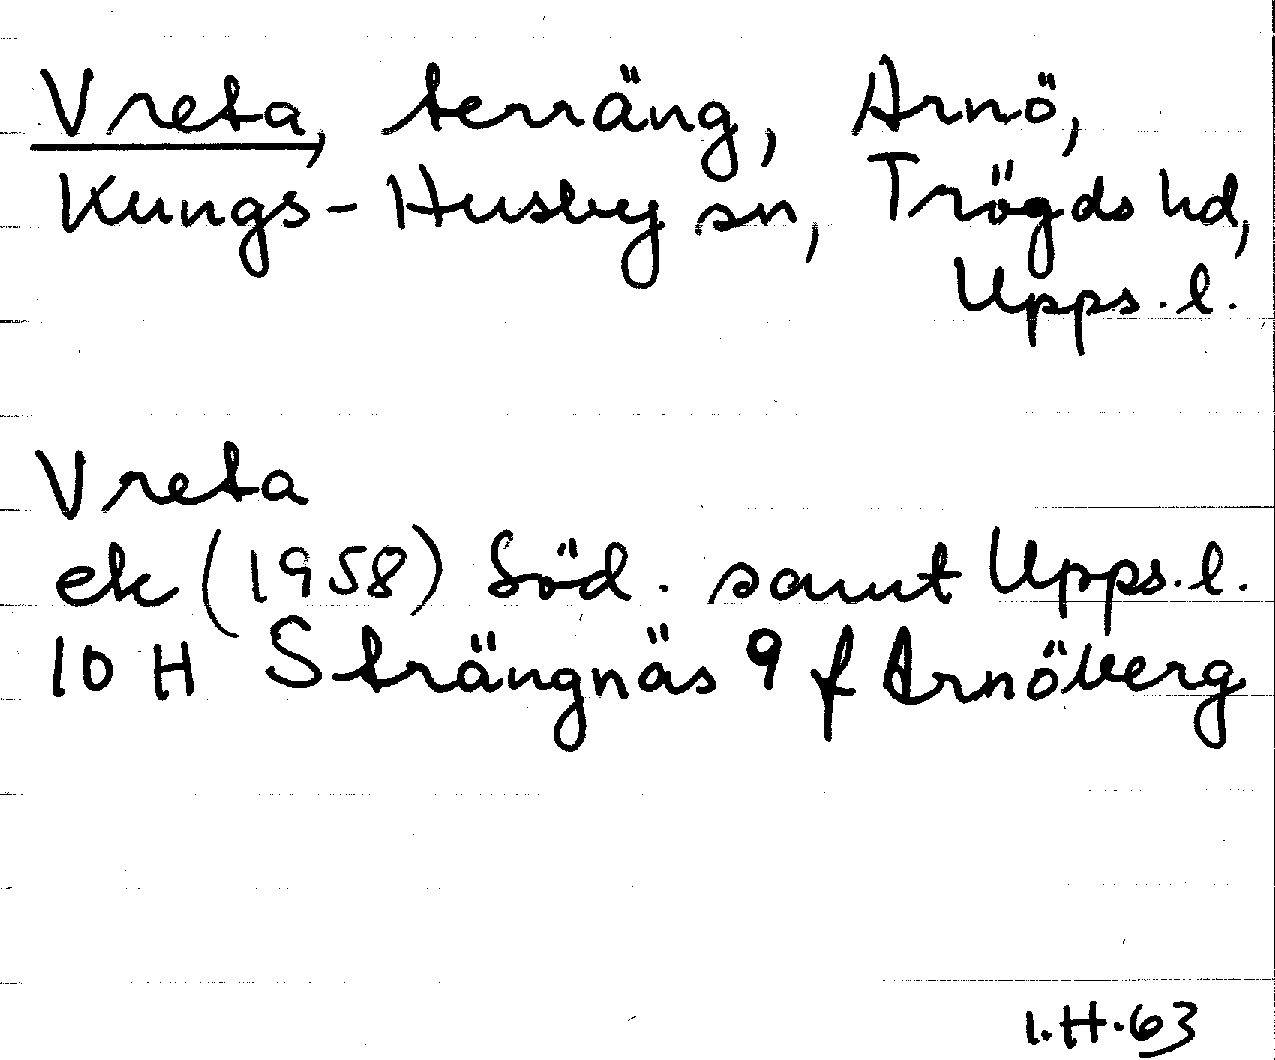 Vreta, terräng, Arnö,
Kungs-Husby sn, Trögds hd,
Upps. l.
Vreta
ek (1958) Söd. samt Upps. l.
10 H Strängnäs 9 f Arnöberg
I.H.63